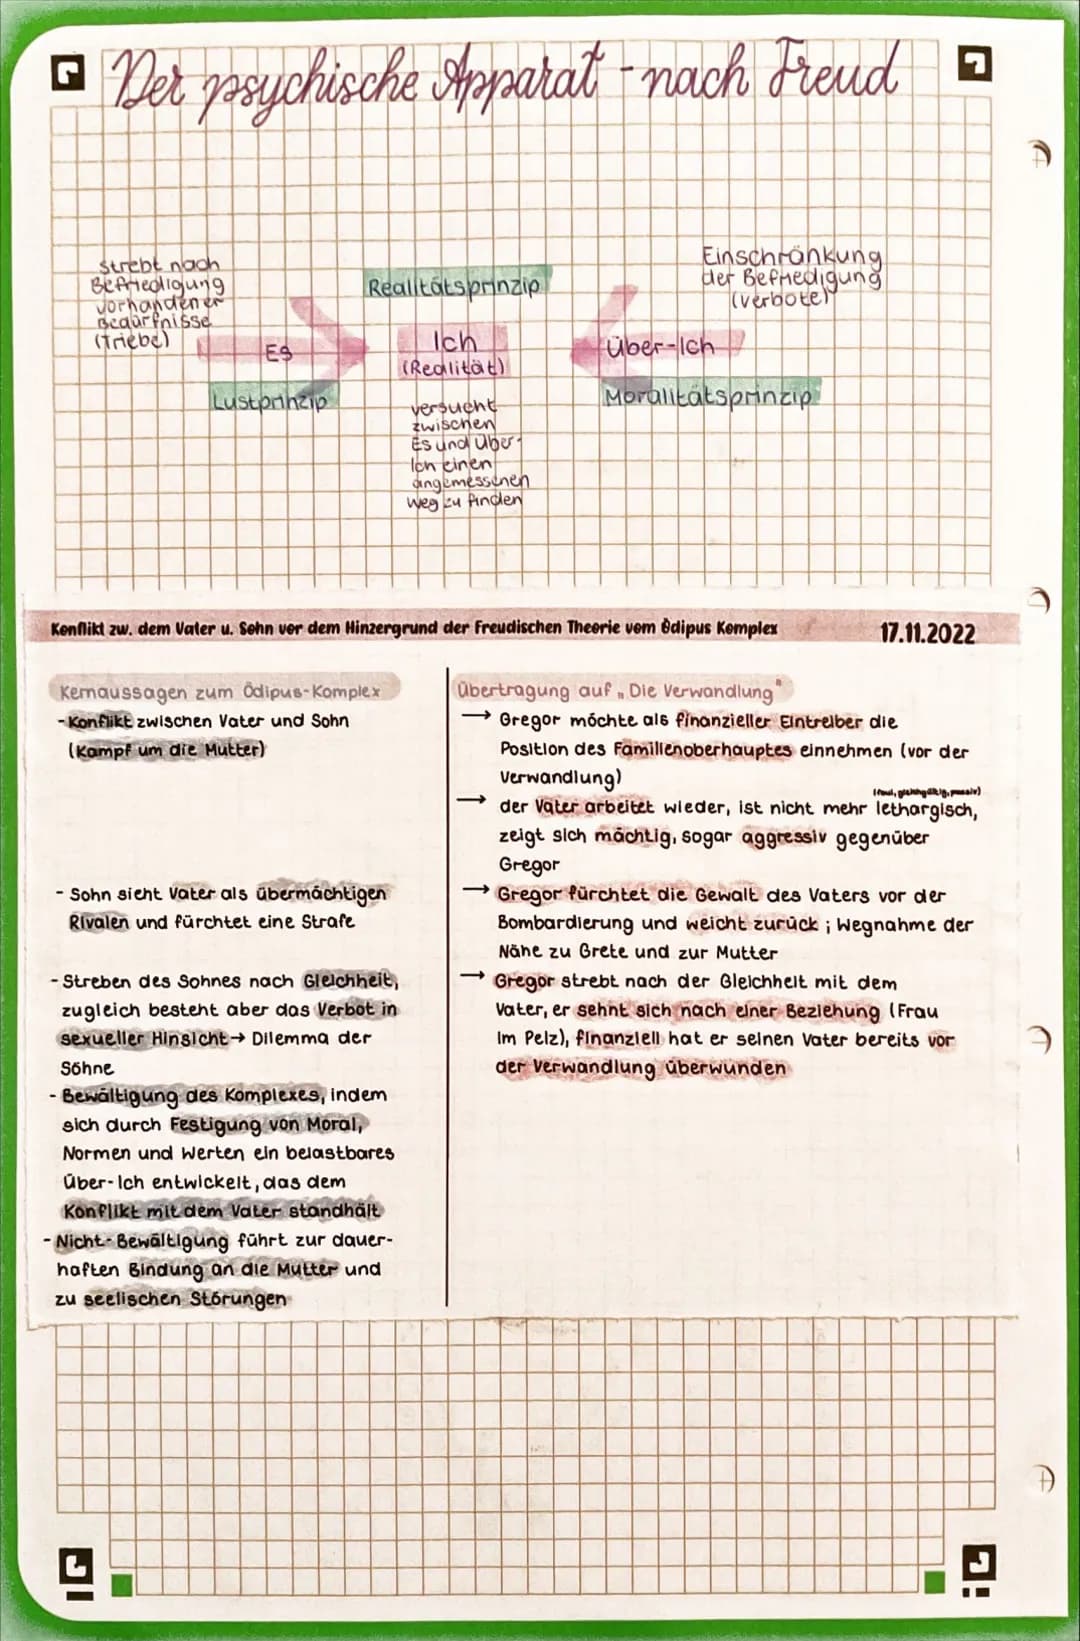 Der psychische Apparat - nach Freud
strebt nach
Befriedigung
vorhandener
Bedürfnisse
(Triebe)
Es
Lustprinzip
Realitätsprinzip
Ich
(Realität)
versucht
zwischen
Es und Über-
Ich einen
angemessenen
Weg zu finden
Einschränkung
der Befriedigung
(Verbote)
Über-Ich
Moralitätsprinzip
Konflikt zw. dem Vater u. Sohn vor dem Hinzergrund der Freudischen Theorie vom Ödipus Komplex 17.11.2022
Kernaussagen zum Ödipus-Komplex
- Konflikt zwischen Vater und Sohn
(Kampf um die Mutter)
- Sohn sieht Vater als übermächtigen
Rivalen und fürchtet eine Strafe
- Streben des Sohnes nach Gleichheit,
zugleich besteht aber das Verbot in
sexueller Hinsicht → Dilemma der
Söhne
- Bewältigung des Komplexes, indem
sich durch Festigung von Moral,
Normen und Werten ein belastbares
Über-Ich entwickelt, das dem
Konflikt mit dem Vater standhält
- Nicht-Bewältigung führt zur dauer-
haften Bindung an die Mutter und
zu seelischen Störungen
Übertragung auf „Die Verwandlung"
→ Gregor möchte als finanzieller Eintreiber die
Position des Familienoberhauptes einnehmen (vor der
Verwandlung)
(faul, gleichgültig, passiv)
→ der Vater arbeitet wieder, ist nicht mehr lethargisch,
zeigt sich mächtig, sogar aggressiv gegenüber
Gregor
→ Gregor fürchtet die Gewalt des Vaters vor der
Bombardierung und weicht zurück ; Wegnahme der
Nähe zu Grete und zur Mutter
→ Gregor strebt nach der Gleichheit mit dem
Vater, er sehnt sich nach einer Beziehung (Frau
im Pelz), finanziell hat er seinen Vater bereits vor
der Verwandlung überwunden